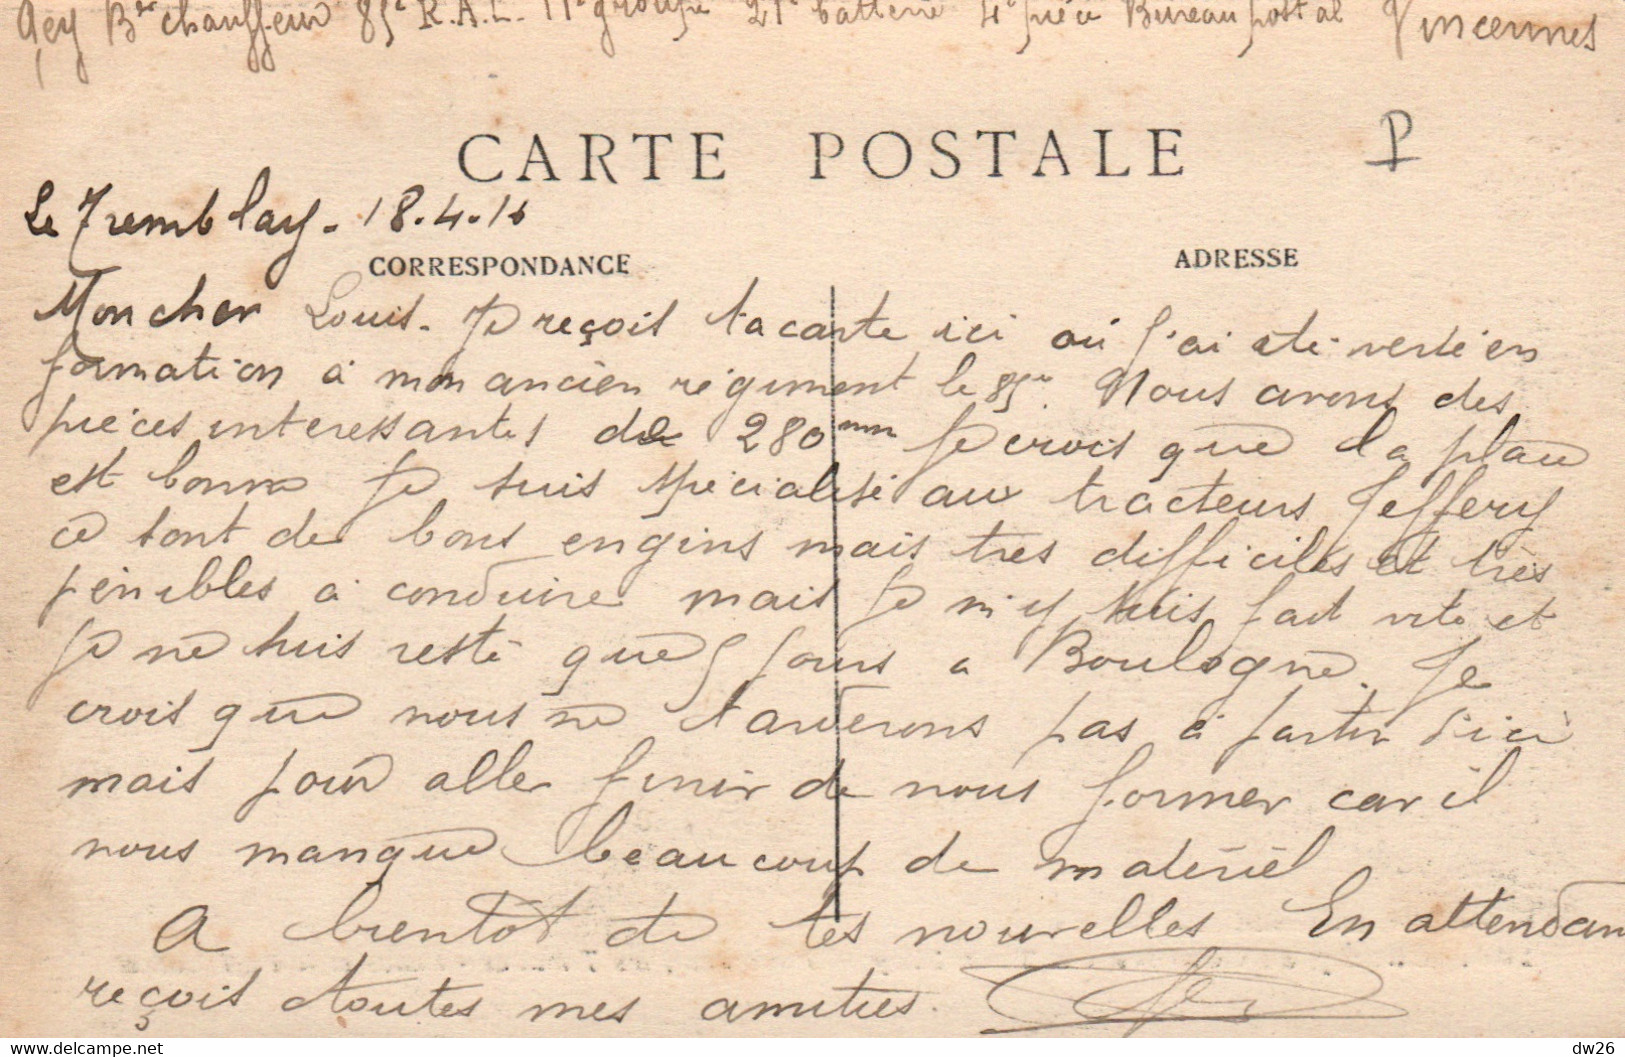 Gey Bier chauffeur 85e R.A.L. 11e groupe 21e batterie 4e pièce Bureau postal Vincennes
CARTE POSTALE
P
Le Tremblay - 18.4.16
CORRESPONDANCE
ADRESSE
Mon cher Louis. Je reçois ta carte ici où j'ai été versé en
formation à mon ancien régiment le 85e. Nous avons des
pièces interessantes de 280mm Je crois que la place
est bonne Je suis spécialisé aux tracteurs Jeffery
ce sont de bons engins mais très difficiles et très
pénibles à conduire mais je m'y suis fait vite et
je ne suis resté que 5 jours a Boulogne. Je
crois que nous ne tarderons pas à partir d'ici
mais pour aller finir de nous former car il
nous manque beaucoup de matériel
A bientôt de tes nouvelles En attendan
reçois toutes mes amitiés.
www.delcampe.net
dw26